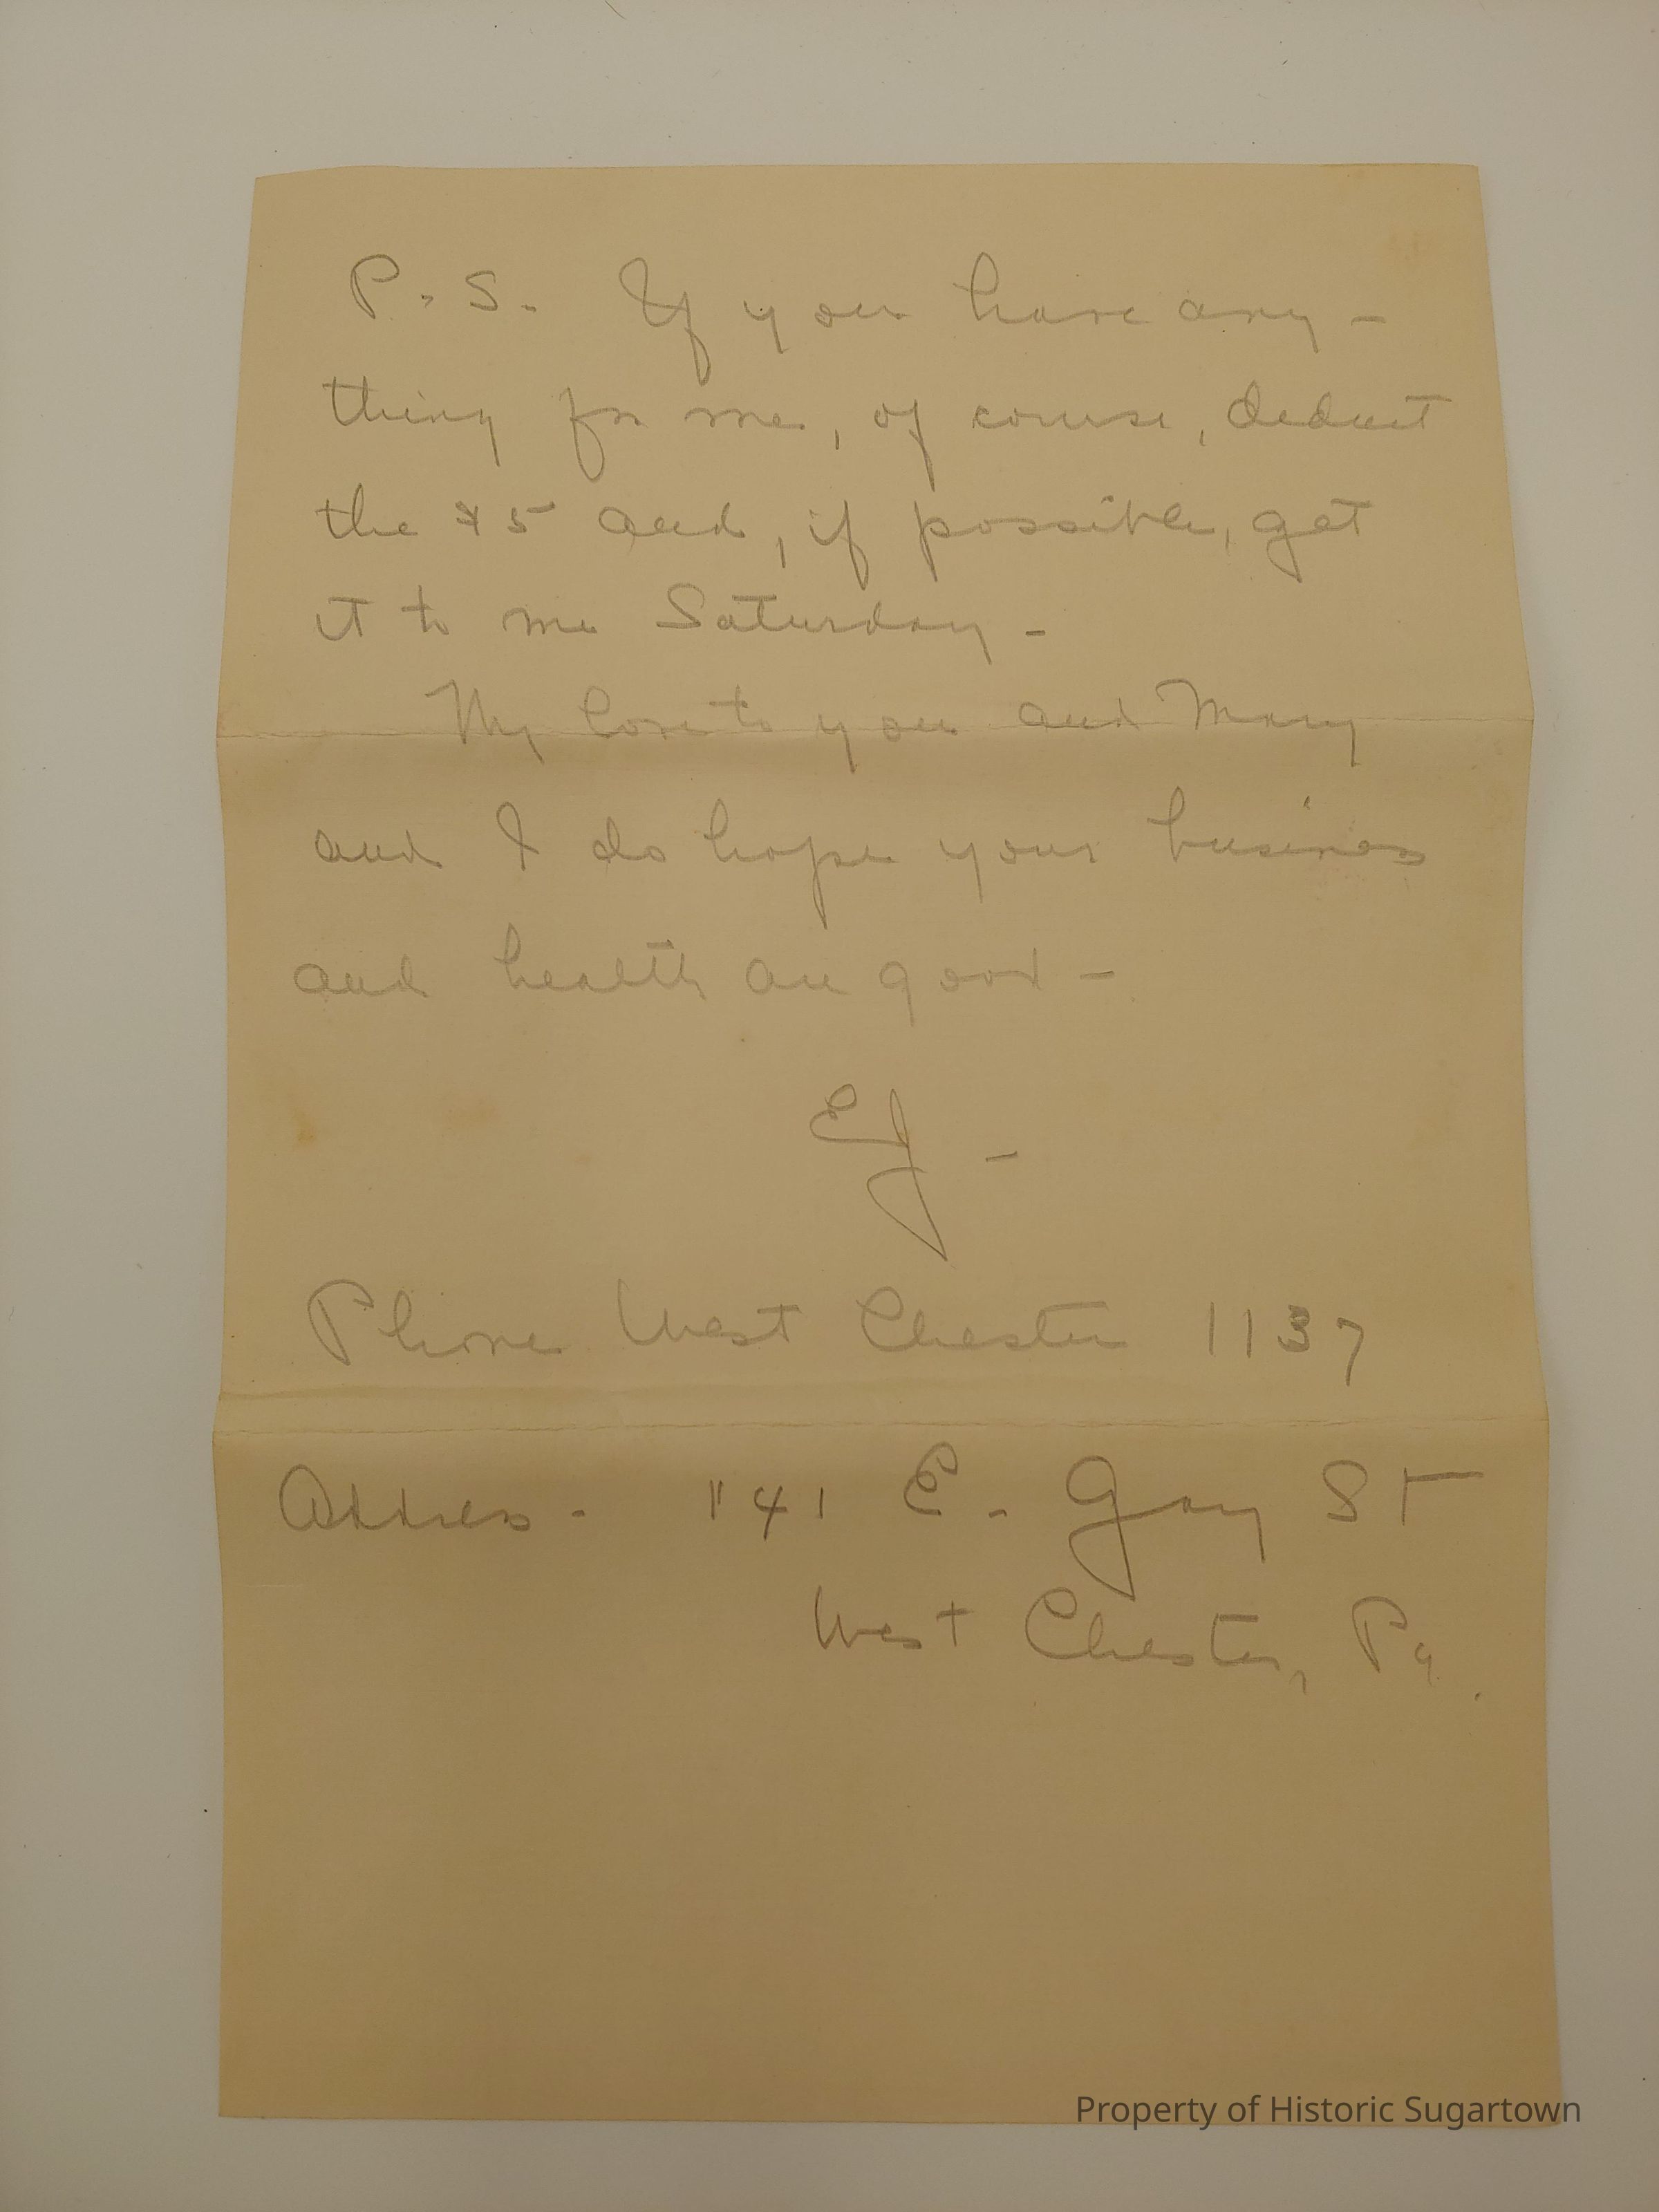 P. S. If you have any-
thing for me, of course, deduct
the $5 and, if possible, get
it to me Saturday -
My love to you and Mary
and I do hope your business
and health are good -
EJ -
Phone West Chester 1137
Address - 141 E. Gay St
West Chester, Pa.
Property of Historic Sugartown